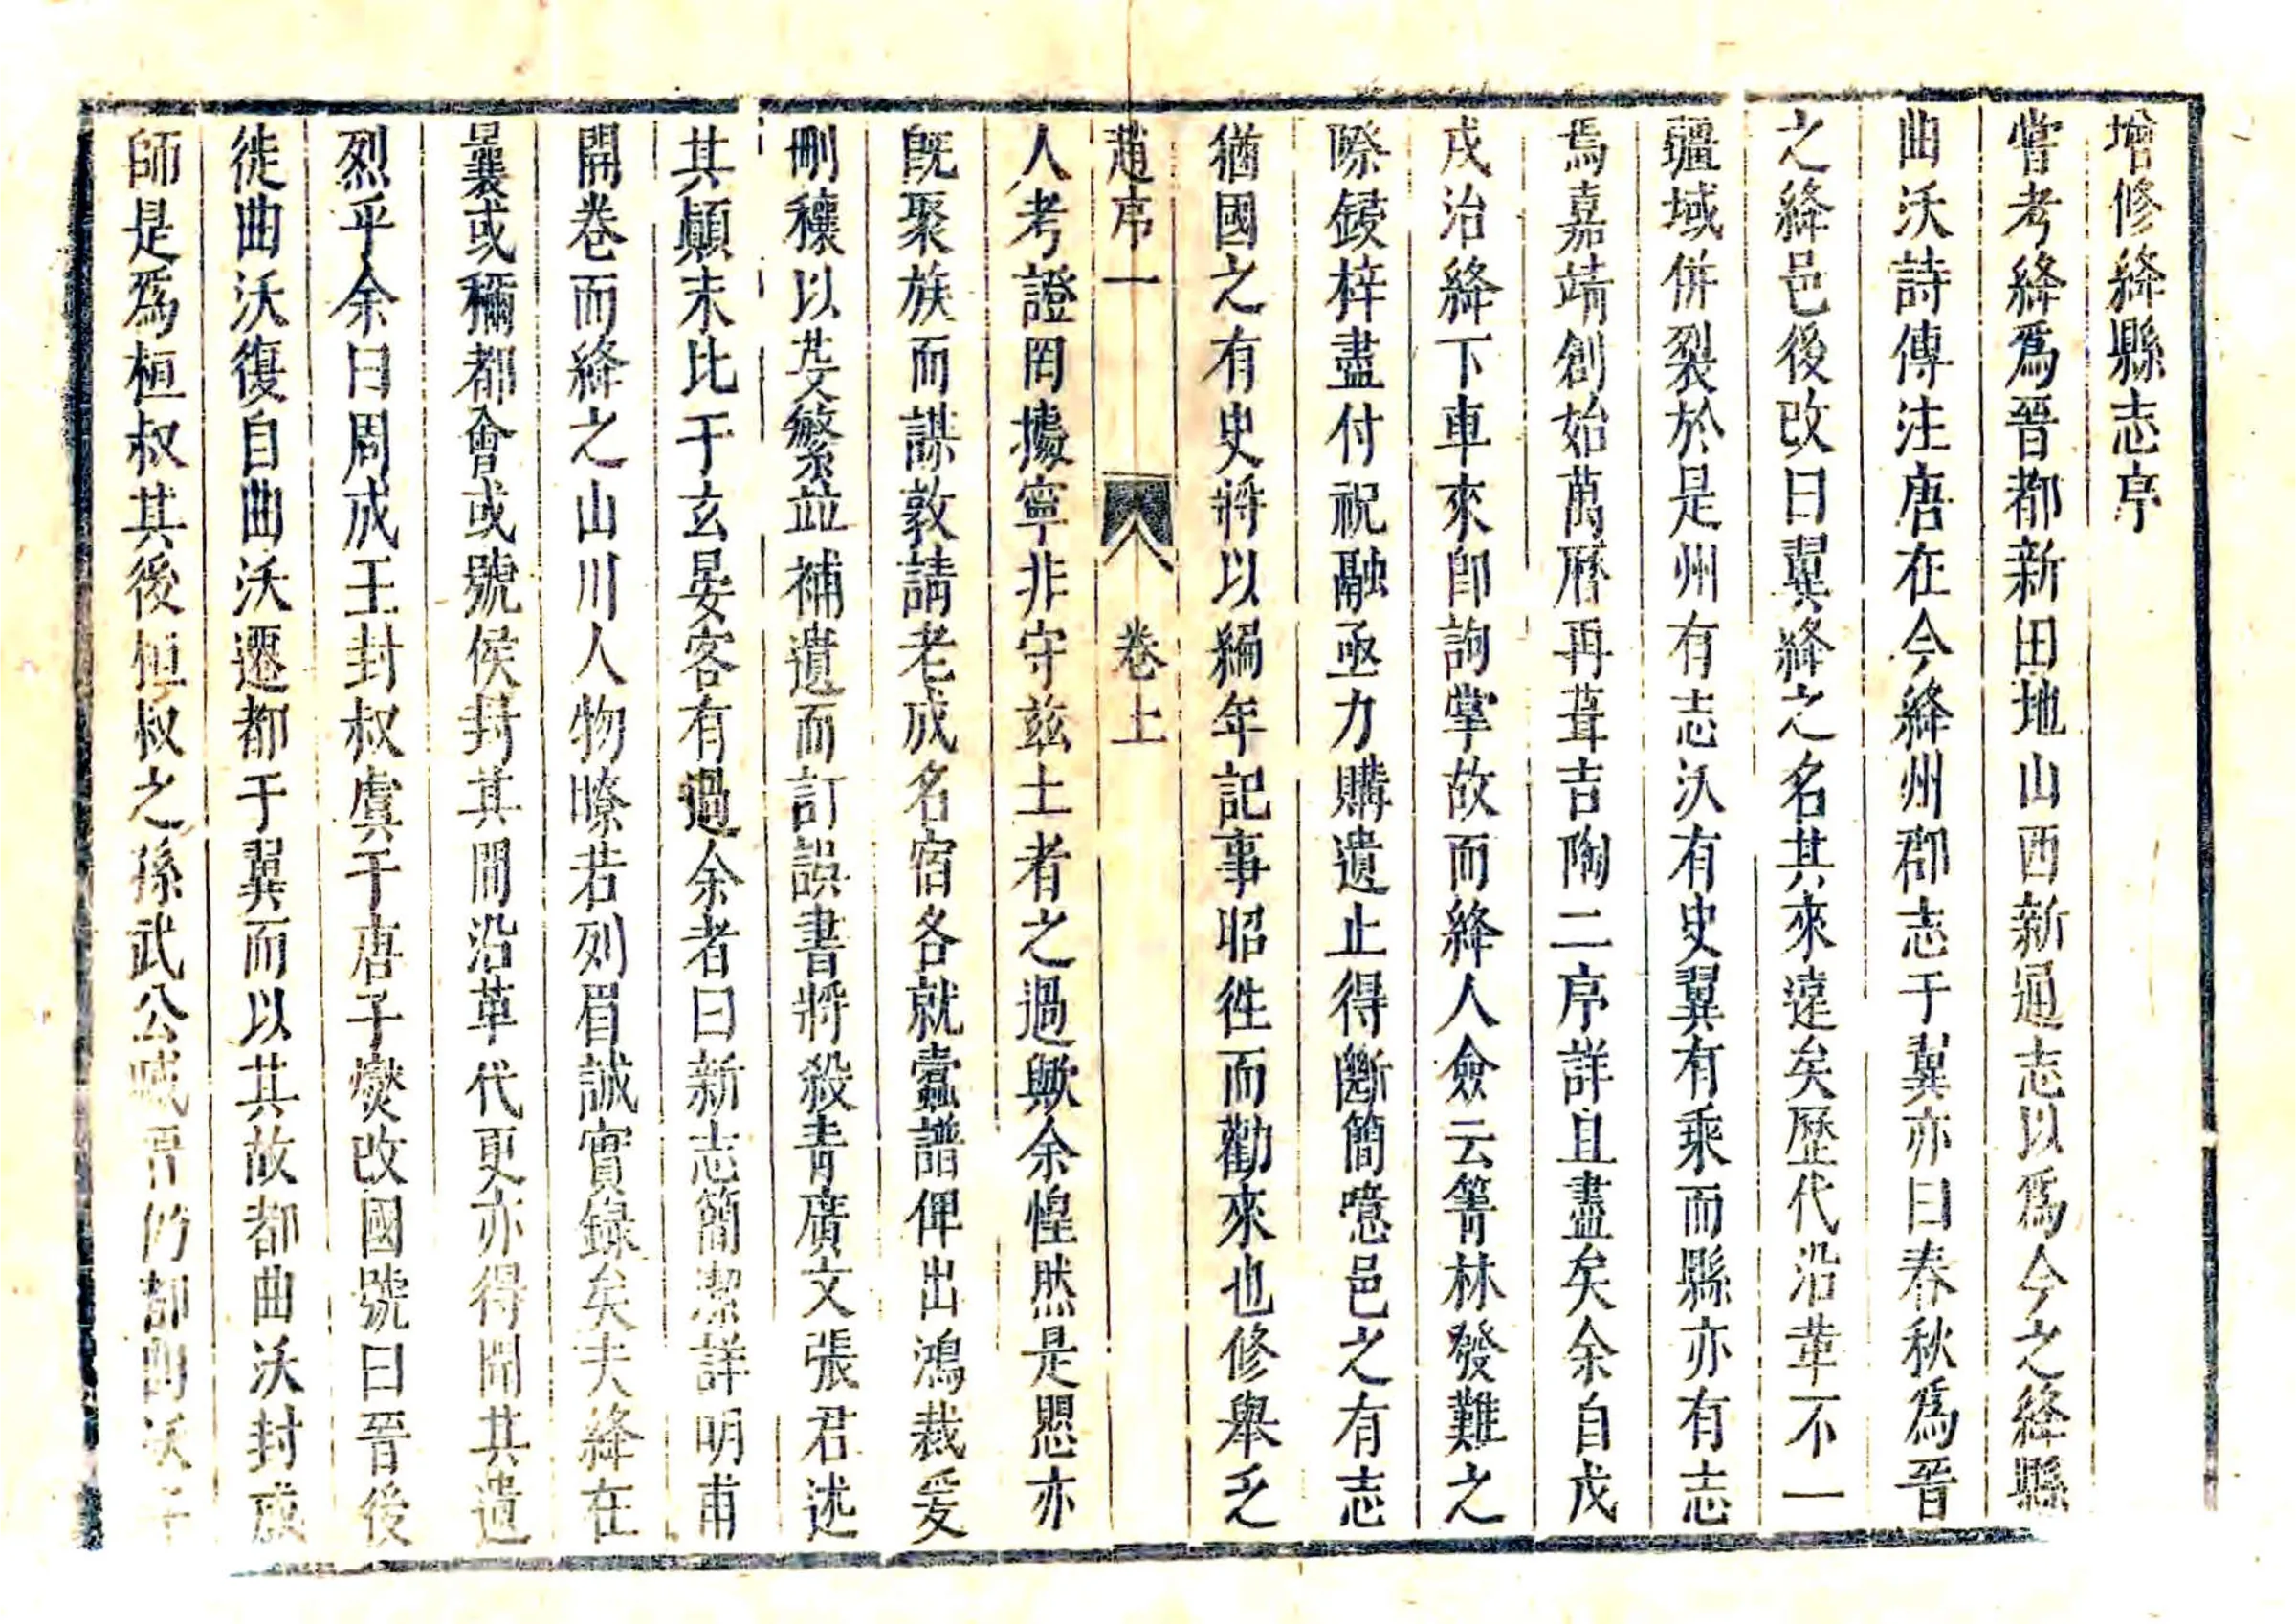 增修絳縣志序
嘗考絳爲晉都新田地山西新通志以爲今之絳縣
曲沃詩傳注唐在今絳州郡志于翼亦曰春秋爲晉
之絳邑後改曰翼絳之名其來遠矣歷代沿革不一
疆域併裂於是州有志沃有史翼有乘而縣亦有志
焉嘉靖創始萬曆再葺吉陶二序詳且盡矣余自戊
戌治絳下車來卽詢掌故而絳人僉云箐林發難之
際鋟梓盡付祝融亟力購遺止得斷簡噫邑之有志
猶國之有史將以編年記事昭徃而勸來也修舉乏
趙序一 卷上
人考證罔據寧非守兹土者之過歟余惶然是愳亦
旣聚族而謀敦請老成名宿各就蠹譜俾出鴻裁爰
刪穢以芟繁並補遺而訂誤書將殺青廣文張君述
其顚末比于玄晏客有過余者曰新志簡潔詳明甫
開卷而絳之山川人物瞭若列眉誠實錄矣夫絳在
曩或稱都會或號侯封其間沿革代更亦得聞其遺
烈乎余曰周成王封叔虞于唐子燮改國號曰晉後
徙曲沃復自曲沃遷都于翼而以其故都曲沃封成
師是爲桓叔其後桓叔之孫武公